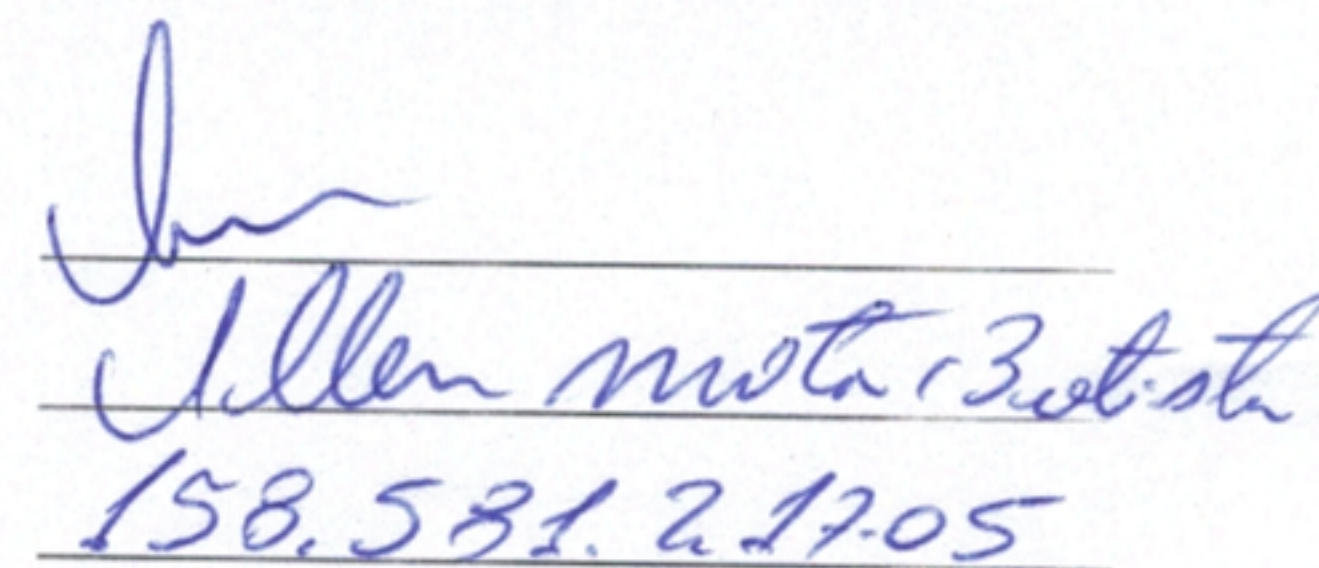 Allen mota Batista
158.581.217-05